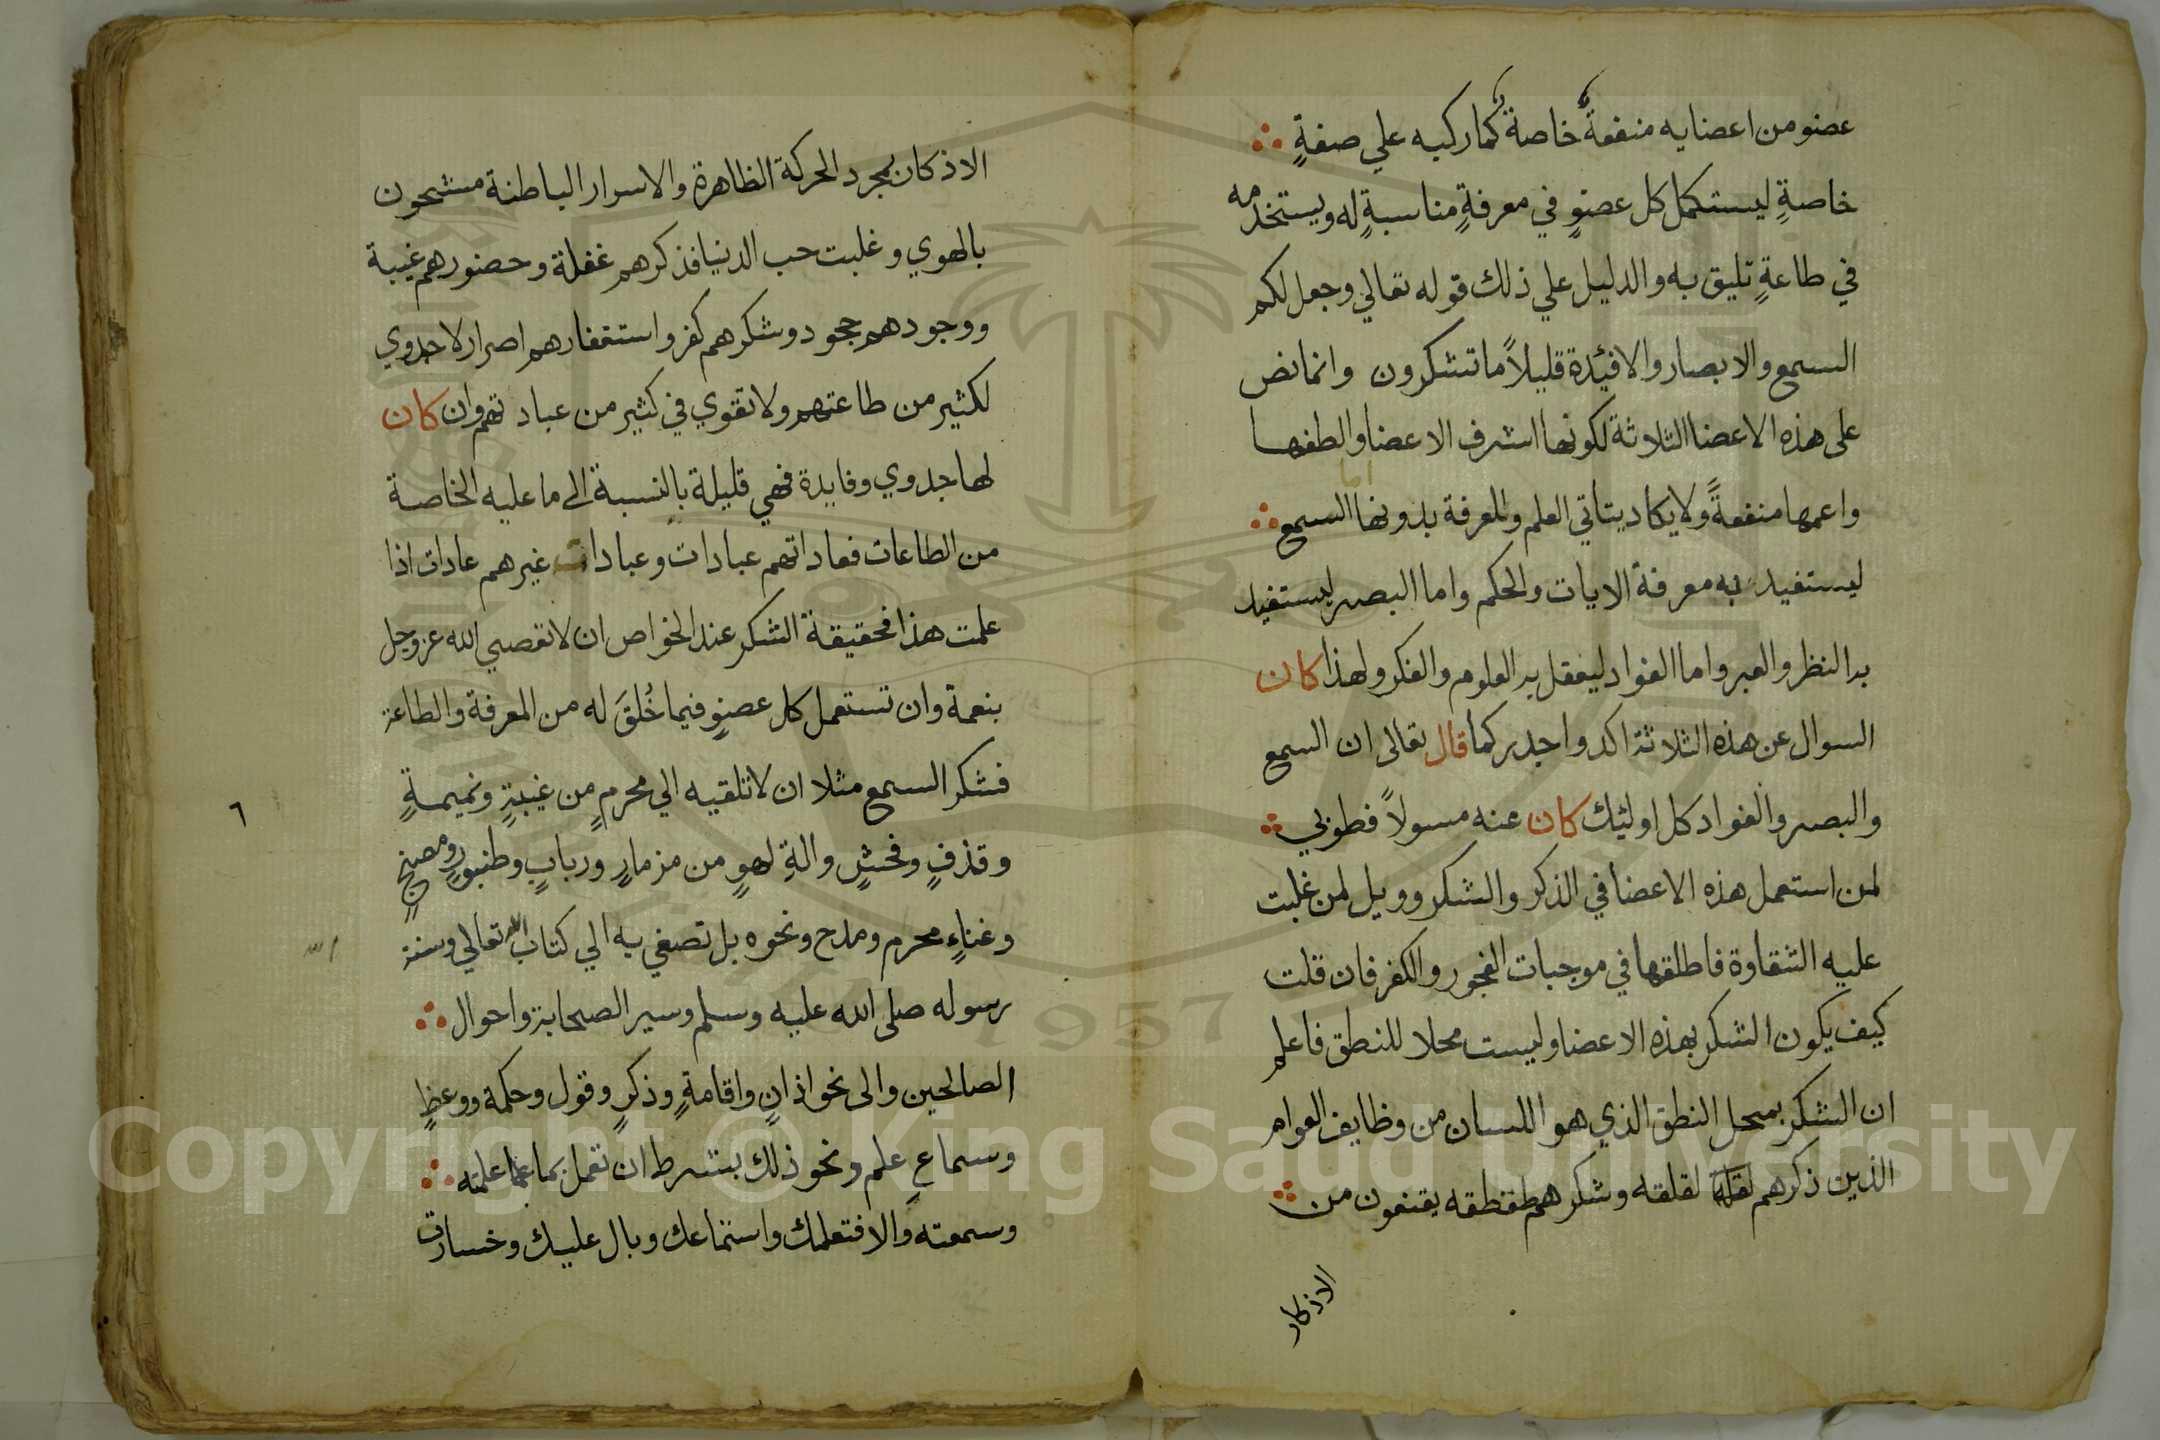 عضو من اعضايه منفعةً خاصة كما ركبه علي صفةٍ
خاصةٍ ليستكمل كل عضوٍ في معرفةٍ مناسبةٍ له ويستخدمه
في طاعةٍ تليق به والدليل علي ذلك قوله تعالي وجعل لكم
السمع والابصار والافئدة قليلاً ما تشكرون وانما نص
على هذه الاعضا الثلاثة لكونها اشرف الاعضا والطفها
واعمها منفعةً ولا يكاد يتاتي العلم والمعرفة بدونها السمع
اما
ليستفيد به معرفة الايات والحكم واما البصر ليستفيد
به النظر والعبر واما الفواد ليعقل به العلوم والفكر ولهذا كان
السوال عن هذه الثلاثة اكد واجدر كما قال تعالى ان السمع
والبصر والفواد كل اولئك كان عنه مسولاً فطوبي
لمن استعمل هذه الاعضا في الذكر والشكر وويل لمن غلبت
عليه الشقاوة فاطلقها في موجبات الفجور والكفر فان قلت
كيف يكون الشكر بهذه الاعضا وليست محلا للنطق فاعلم
ان الشكر بمحل النطق الذي هو اللسان من وظايف العوام
الذين ذكرهم لقلقه وشكرهم طقطقه يقنعون من
الاذكار
الاذكار بمجرد الحركة الظاهرة والاسرار الباطنة مشحون
بالهوي وغلبت حب الدنيا فذكرهم غفلة وحضورهم غيبة
ووجودهم جحود وشكرهم كفر واستغفارهم اصرار لا جدوي
لكثير من طاعتهم ولا تقوي في كثير من عباد تهم وان كان
لها جدوي وفايدة فهي قليلة بالنسبة الى ما عليه الخاصة
من الطاعات فعاداتهم عبادات وعبادات غيرهم عادات اذا
علمت هذا فحقيقة الشكر عند الخواص ان لا تعصي الله عز وجل
بنعمة وان تستعمل كل عضوٍ فيما خُلقَ له من المعرفة والطاعة
فشكر السمع مثلا ان لا تلقيه الي محرمٍ من غيبةٍ ونميمةٍ
وقذفٍ وفحشٍ والةِ لهوٍ من مزمارٍ وربابٍ وطنبورٍ وصنجٍ
وغناءٍ محرم ومدح ونحوه بل تصغي به الي كتاب الله تعالي وسنة
رسوله صلى الله عليه وسلم وسير الصحابة واحوال
الصالحين والى نحو اذانٍ واقامةٍ وذكرٍ وقول وحكمة ووعظٍ
وسماعِ علم ونحو ذلك بشرط ان تعمل بما علمته
وسمعته والا فتعلمك واستماعك وبال عليك وخسارة
٦
الله
Copyright © King Saud University
1957